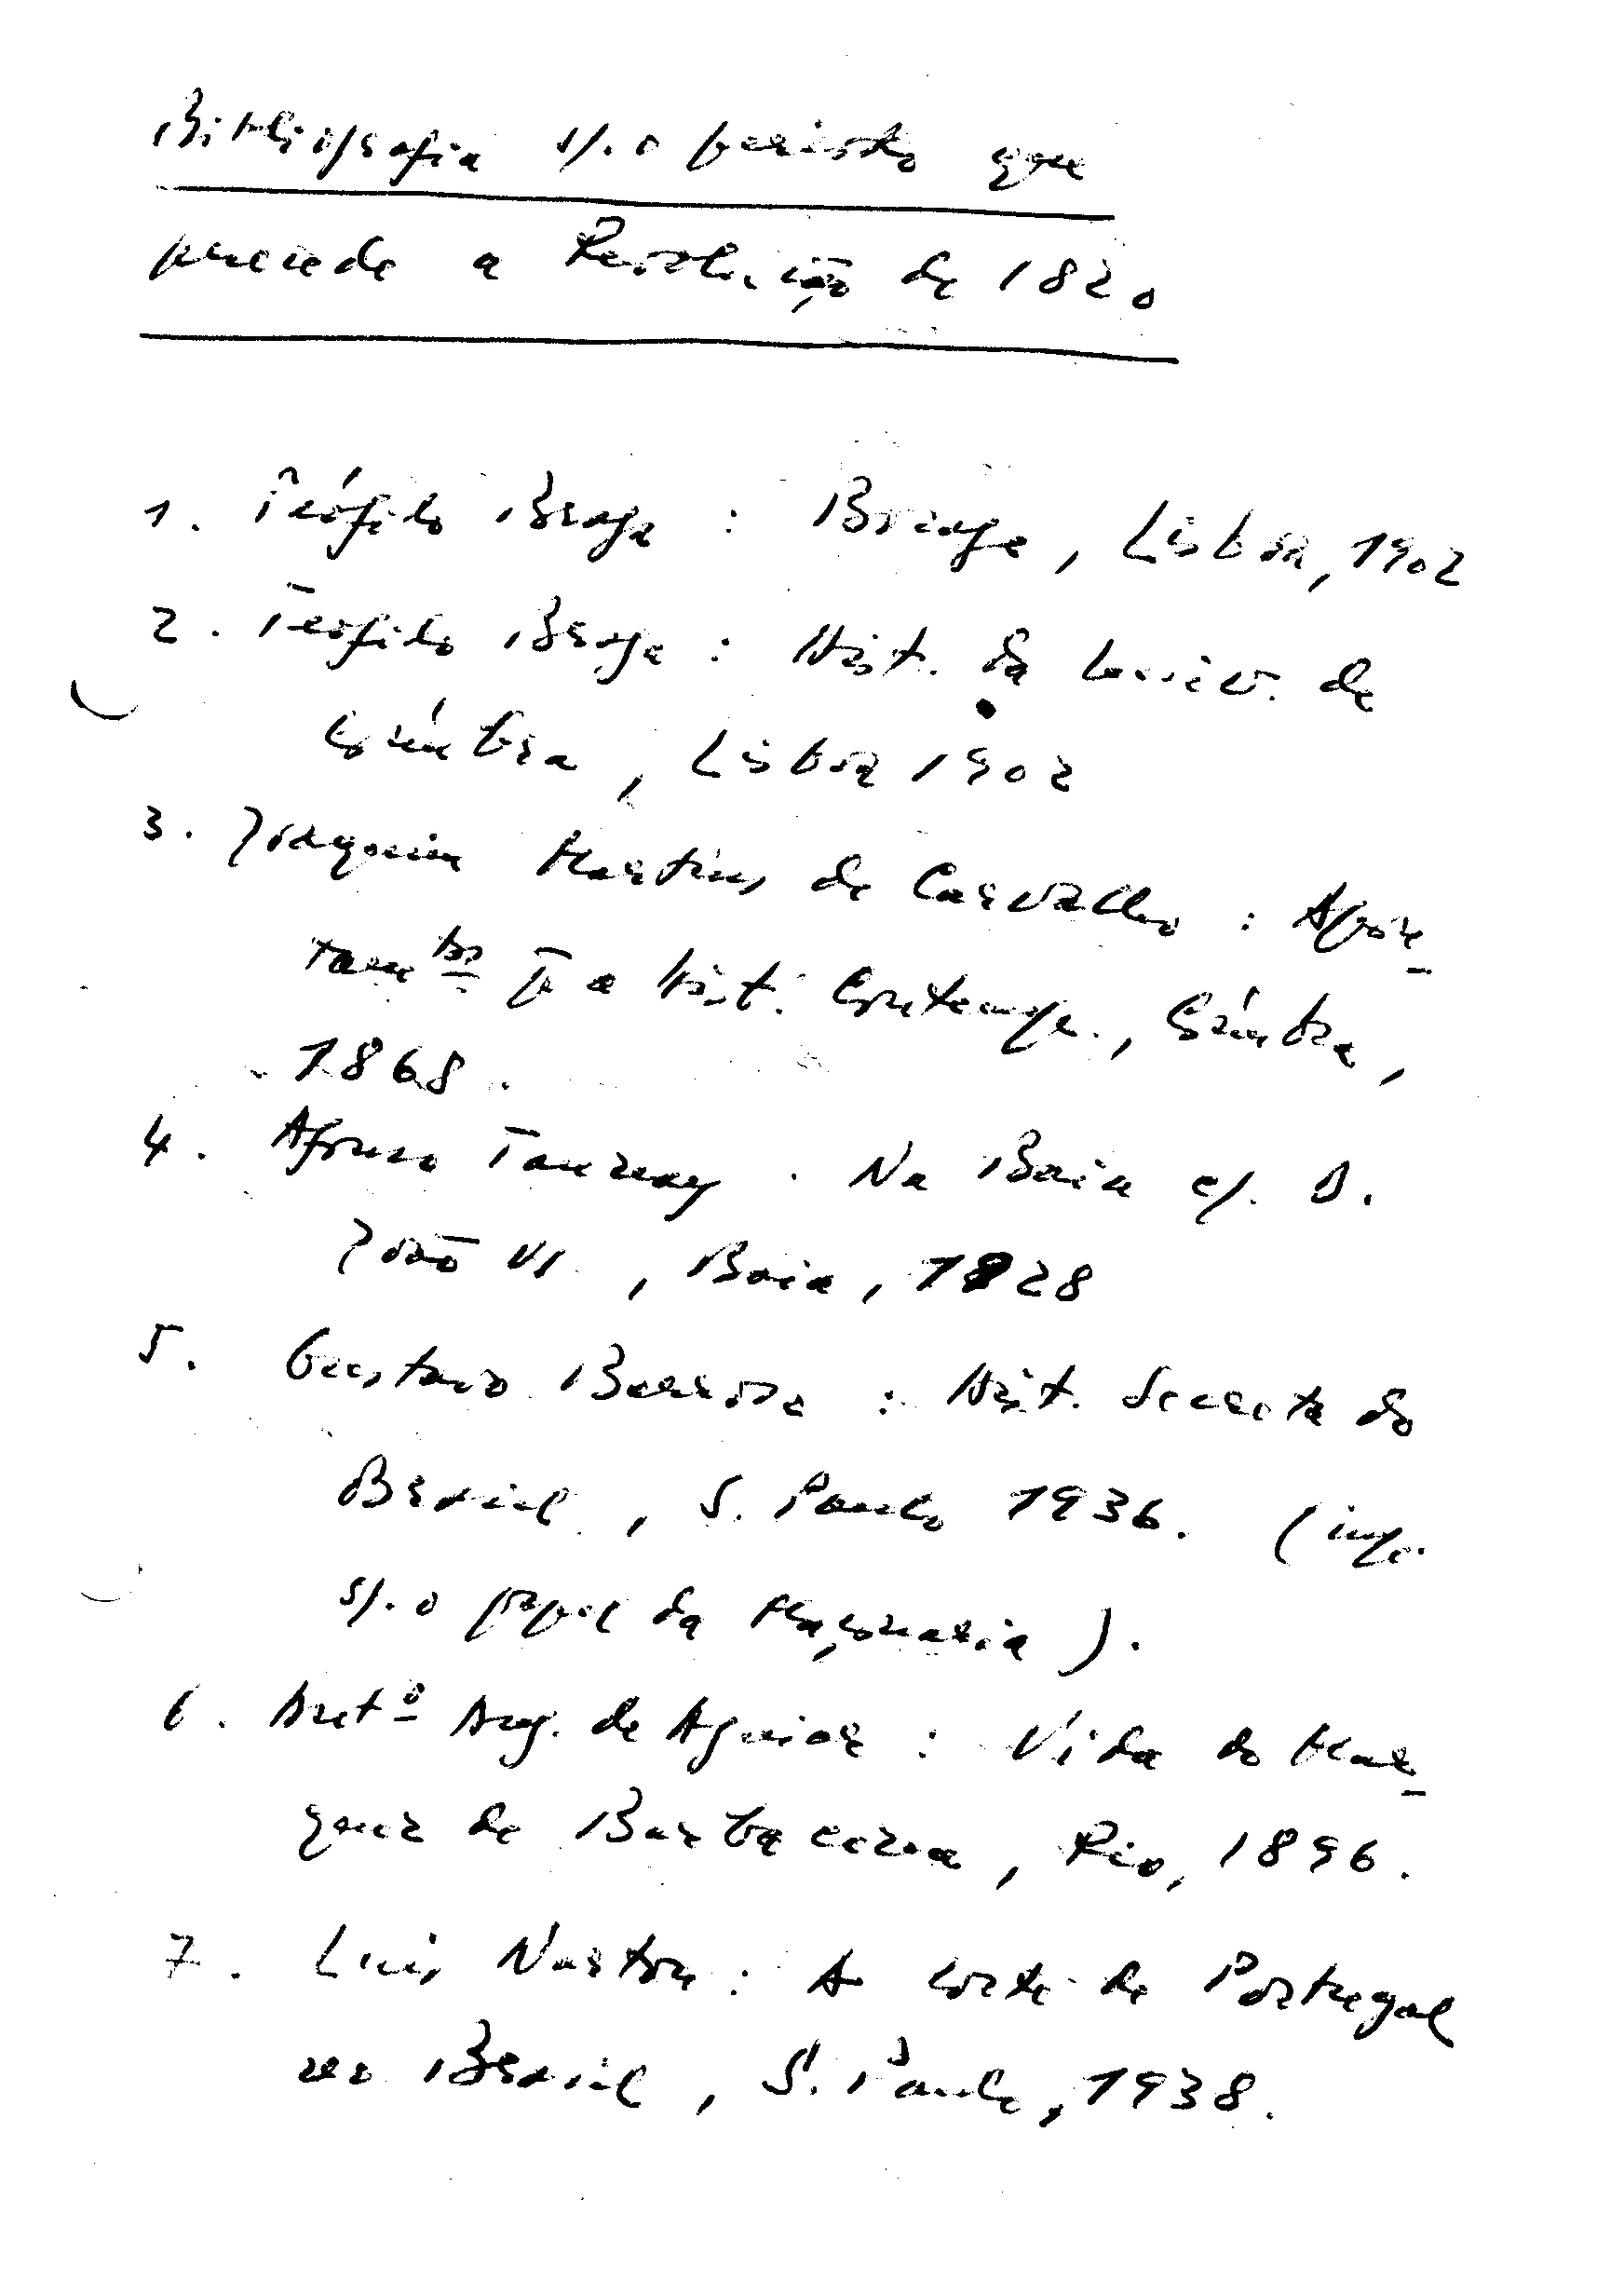 Bibliografia s/. o período que
precede a Revolução de 1820
1. Teófilo Braga : Bocage, Lisboa, 1902
2. Teófilo Braga : Hist. da Univ. de
Coimbra, Lisboa 1902
3. Joaquim Martins de Carvalho : Apon-
tamtos pa a Hist. Contemp., Coimbra,
1868.
4. Afonso Taunay . Na Baía c/. D.
João VI , Baía, 1828
5. Gustavo Barroso : Hist. Secreta do
Brasil, S. Paulo 1936. (imp.
s/. o papel da Maçonaria ).
6. Antº Aug. de Aguiar : Vida do Mar-
quez de Barbacena, Rio, 1896.
7. Luis Norton : A Corte de Portugal
no Brasil, S. Paulo, 1938.